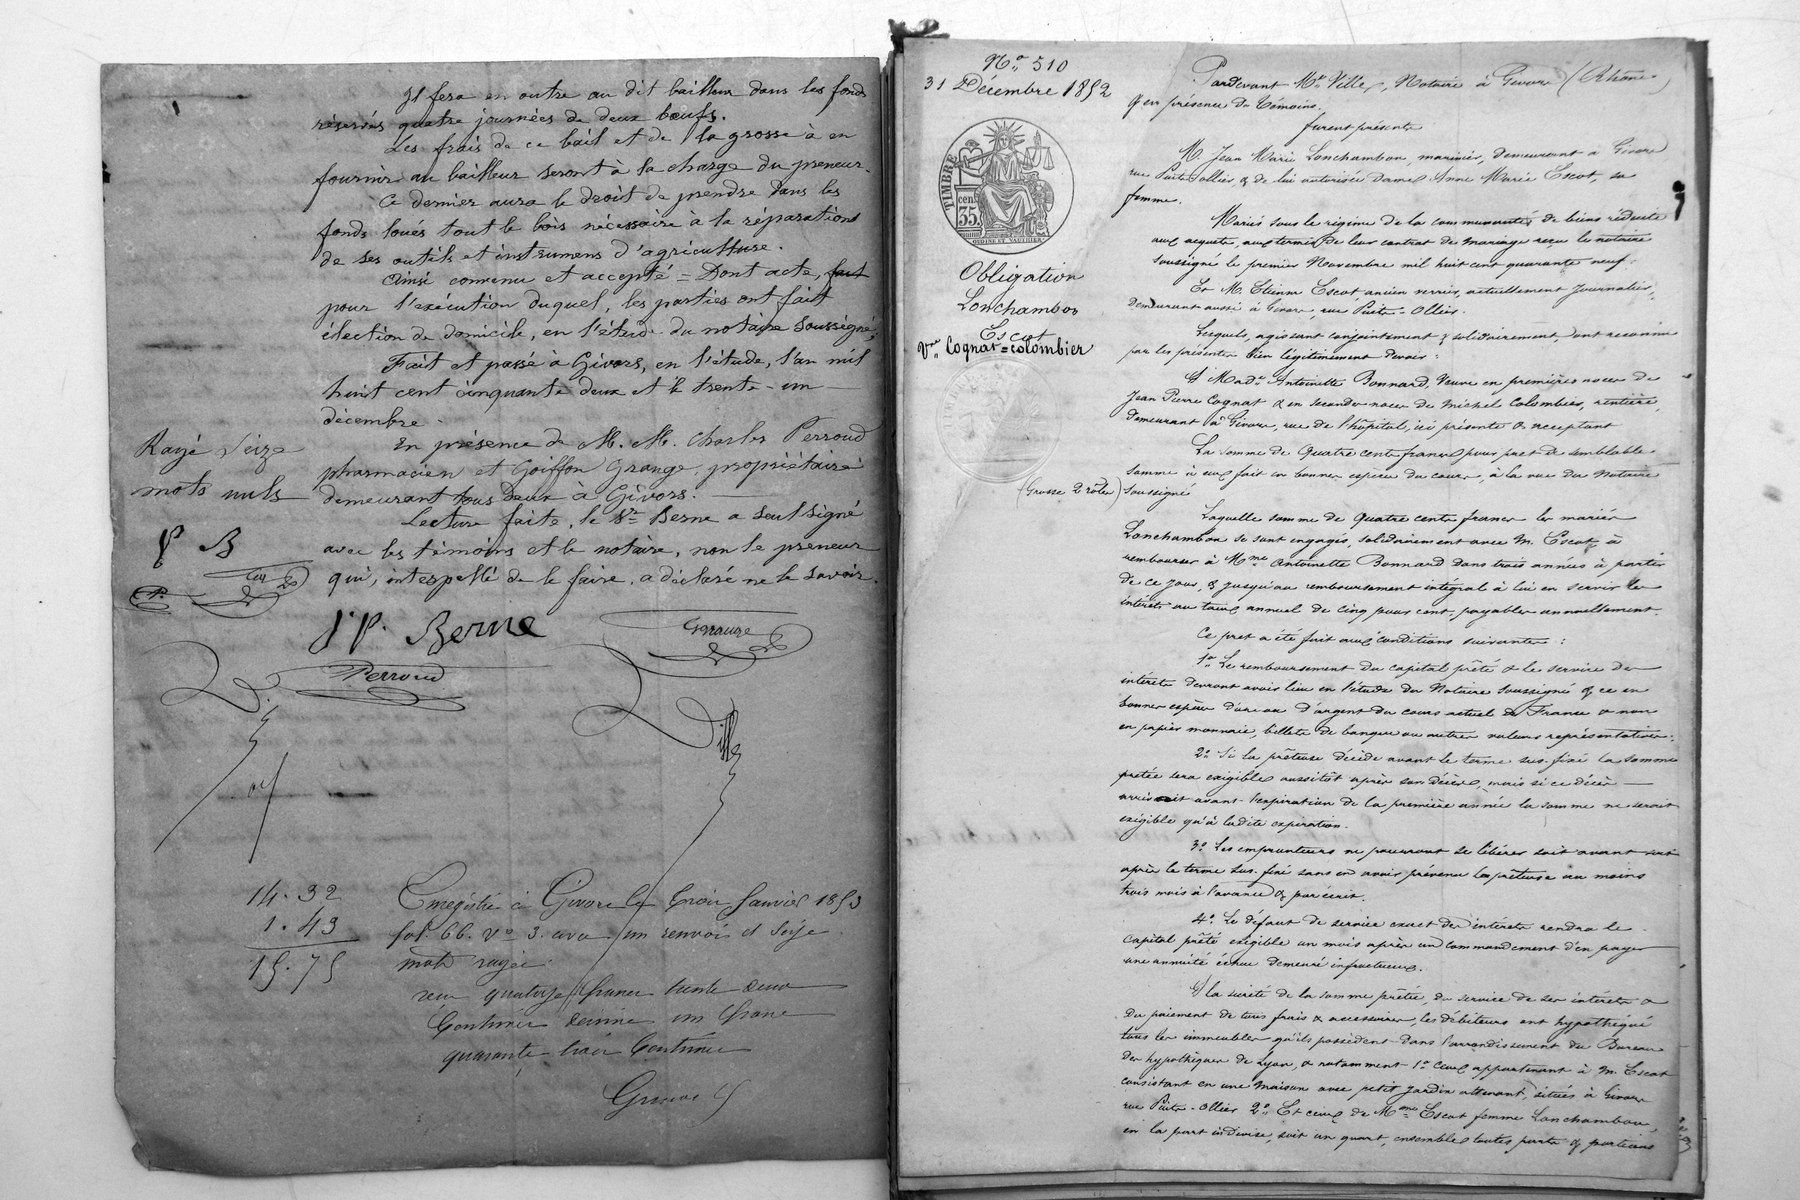 Il fera en outre au dit bailleur dans les fonds
réservés quatre journées de deux bœufs.
Les frais de ce bail et de la grosse à en
fournir au bailleur seront à la charge du preneur.
Ce dernier aura le droit de prendre dans les
fonds loués tout le bois nécessaire à la réparation
de ses outils et instrumens d'agriculture.
Ainsi convenu et accepté = Dont acte, fait
pour l'exécution duquel, les parties ont fait
élection de domicile, en l'étude du notaire soussigné,
Fait et passé à Givors, en l'étude, l'an mil
huit cent cinquante deux et le trente-un
décembre.
En présence de M. M. Charles Perroud
pharmacien et Goiffon Grange, propriétaire
demeurant tous deux à Givors.
Lecture faite, le Sr Berne a seul signé
avec les témoins et le notaire, non le preneur
qui, interpellé de le faire, a déclaré ne le savoir.
Rayé seize
mots nuls
P B
J. P. Berne
Grange
Perroud
Ville
14.32
1.43
15.75
Enregistré à Givors le trois Janvier 1853
fol. 66. Vo 3. avec un renvoi et seize
mots rayés.
reçu quatorze francs trente deux
Centimes décime un franc
quarante trois Centimes
No 510
31 Décembre 1852
TIMBRE
cen. 35.
Obligation
Lonchambon
Escot
Vve Cognat=Colombier
(Grosse 2 rôles)
Pardevant Me Ville, Notaire à Givors (Rhône)
& en présence de témoins.
furent présents
M. Jean Marie Lonchambon, marinier, demeurant à Givors
rue Puits-Ollier, & de lui autorisée dame Anne Marie Escot, sa
femme.
Mariés sous le régime de la communauté de biens réduite
aux acquets, aux termes de leur contrat de mariage reçu le notaire
soussigné le premier Novembre mil huit cent quarante neuf.
Et M. Etienne Escot, ancien verrier, actuellement journalier,
demeurant aussi à Givors, rue Puits-Ollier.
Lesquels, agissant conjointement & solidairement, ont reconnu
par les présentes bien légitimement devoir:
à Made Antoinette Bonnard, Veuve en premières noces de
Jean Pierre Cognat & en secondes noces de Michel Colombier, rentière,
demeurant à Givors, rue de l'hôpital, ici présente & acceptant
La somme de Quatre cents francs pour pret de semblable
somme à eux fait en bonnes espèces du cours, à la vue du Notaire
soussigné
Laquelle somme de quatre cents francs les mariés
Lonchambon se sont engagés, solidairement avec M. Escot, à
rembourser à Mme Antoinette Bonnard dans trois années à partir
de ce jour, & jusqu'au remboursement intégral à lui en servir les
interets au taux annuel de cinq pour cent, payables annuellement.
Ce pret a été fait aux conditions suivantes:
1o Le remboursement du capital prêté & le service des
interets devront avoir lieu en l'étude du Notaire soussigné & ce en
bonnes espèces d'or ou d'argent du cours actuel de France & non
en papier monnaie, billets de banque ou autres valeurs représentatives.
2o Si la prêteuse décède avant le terme sus-fixé la somme
pretée sera exigible aussitôt après son décès, mais si ce décès
arrivait avant l'expiration de la première année la somme ne serait
exigible qu'à ladite expiration.
3o Les emprunteurs ne pourront se libérer soit avant soit
après le terme sus-fixé sans en avoir prévenu la prêteuse au moins
trois mois à l'avance & par écrit.
4o Le défaut de service exact des interets rendra le
capital prêté exigible un mois après un commandement d'en payer
une annuité échue demeuré infructueux.
à la sureté de la somme prêtée, du service de ses intérets &
du paiement de tous frais & accessoires, les débiteurs ont hypothéqué
tous les immeubles qu'ils possèdent dans l'arrondissement du Bureau
des hypothèques de Lyon, & notamment 1o Ceux appartenant à M. Escot
consistant en une maison avec petit jardin attenant, situés à Givors
rue Puits-Ollier 2o Et ceux de Mme Escot femme Lonchambon,
en la part indivise, soit un quart, ensemble toutes parts & portions